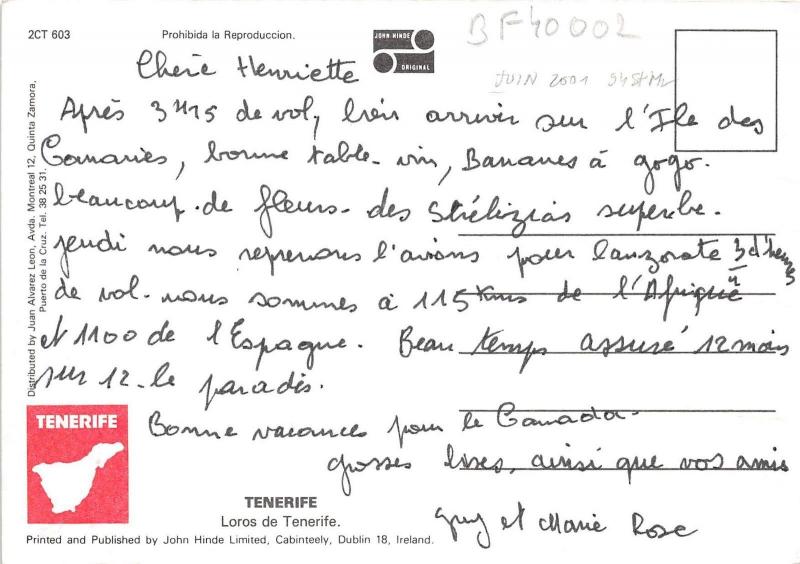 2CT 603
Prohibida la Reproduccion.
JOHN HINDE
ORIGINAL
BF40002
JUIN 2001
Chère Henriette
Après 3H15 de vol, bien arrivir sur l'Ile des
Canaries, bonne table - vin, Bananes à gogo.
beaucoup de fleurs - des Strélizias superbe.
jeudi nous reprenons l'avions pour lanzorate 3/4 d'heures
de vol - nous sommes à 115 Kms de l'Afrique
et 1100 de l'Espagne. Beau temps assuré 12 mois
sur 12 - le paradis.
Bonne vacances pour le Canada -
grosses bises, ainsi que vos amis
guy et Marie Rose
Distributed by Juan Alvarez Leon, Avda. Montreal 12, Quinta Zamora,
Puerto de la Cruz. Tel. 38 25 31.
TENERIFE
TENERIFE
Loros de Tenerife.
Printed and Published by John Hinde Limited, Cabinteely, Dublin 18, Ireland.